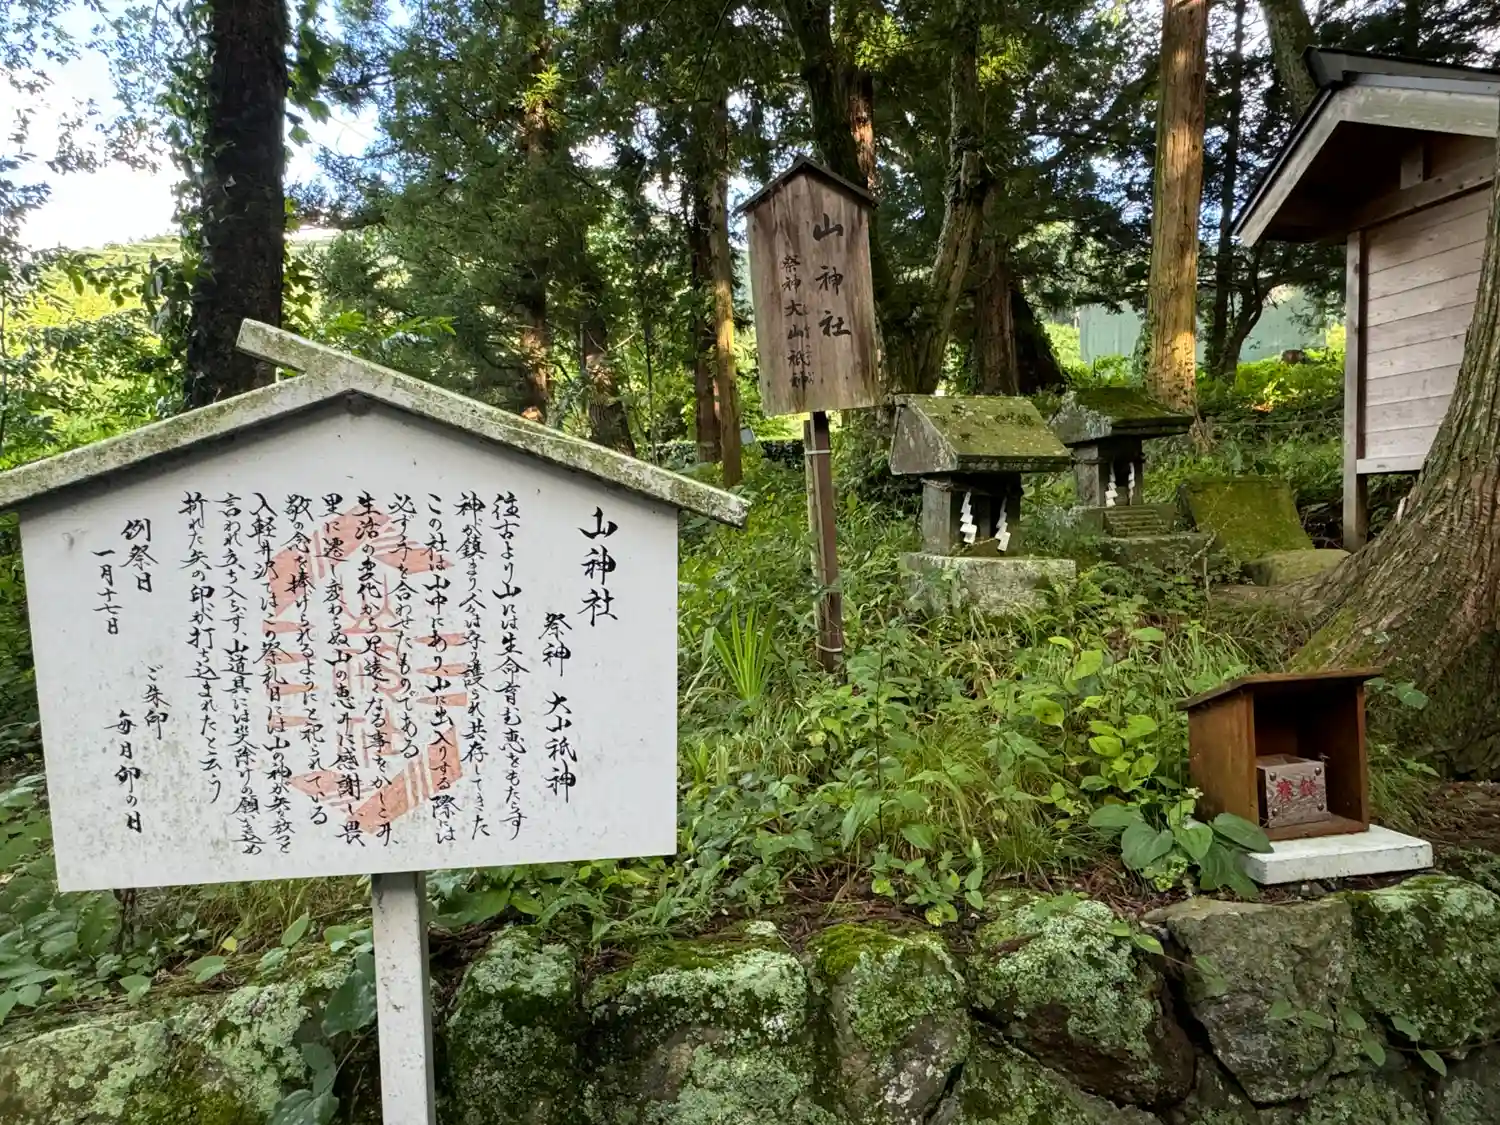 山神社
祭神 大山祇神
往古より山には生命育む恵をもたらす
神が鎮まり人々は守護られ共存してきた
この社は山中にあり山に出入りする際には
必ず手を合わせたものである
生活の変代から足遠くなる事をかしこみ、
里に遷し変わらぬ山の恵みに感謝し畏
敬の念を捧げられるように祀られている
入軽井沢ではこの祭礼日には山の神が矢を放つと
言われ立ち入らず、山道具には災除けの願いを込め
折れた矢の印が打ち込まれたと云う
例祭日
一月十七日
ご朱印
毎月卯の日
山神社
祭神 大山祇神